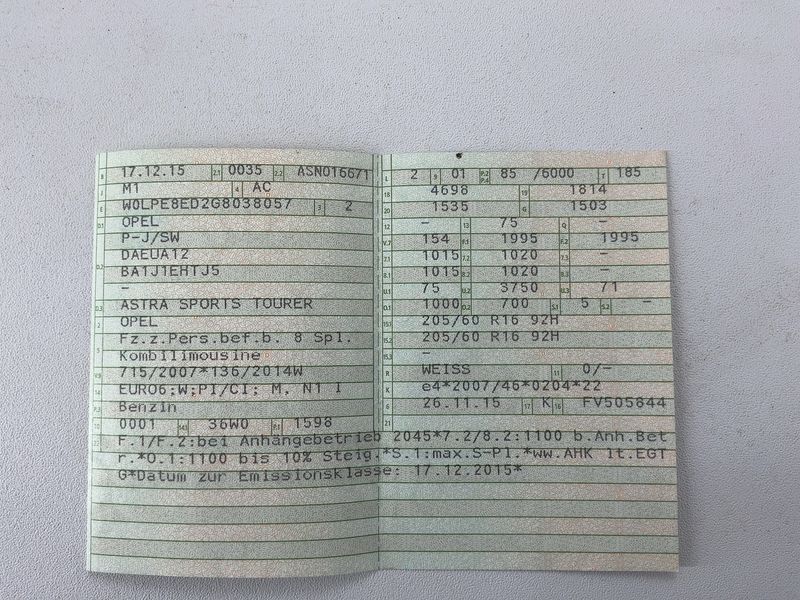 B 17.12.15 2.1 0035 2.2 ASN016671
J M1 4 AC
E W0LPE8ED2G8038057 3 2
D.1 OPEL
P-J/SW
D.2 DAEUA12
BA1J1EHTJ5
–
D.3 ASTRA SPORTS TOURER
2 OPEL
5 Fz.z.Pers.bef.b. 8 Spl.
Kombilimousine
V.9 715/2007*136/2014W
14 EURO6;W;PI/CI; M, N1 I
P.3 Benzin
10 0001 14.1 36W0 P.1 1598
L 2 9 01 P.2 P.4 85 /6000 T 185
18 4698 19 1814
20 1535 G 1503
12 – 13 75 Q –
V.7 154 F.1 1995 F.2 1995
7.1 1015 7.2 1020 7.3 –
8.1 1015 8.2 1020 8.3 –
U.1 75 U.2 3750 U.3 71
O.1 1000 O.2 700 S.1 5 S.2 –
15.1 205/60 R16 92H
15.2 205/60 R16 92H
15.3 –
R WEISS 11 0/–
K e4*2007/46*0204*22
6 26.11.15 17 K 16 FV505844
21
22 F.1/F.2:bei Anhängebetrieb 2045*7.2/8.2:1100 b.Anh.Bet
r.*O.1:1100 bis 10% Steig.*S.1:max.S-Pl.*ww.AHK lt.EGT
G*Datum zur Emissionsklasse: 17.12.2015*